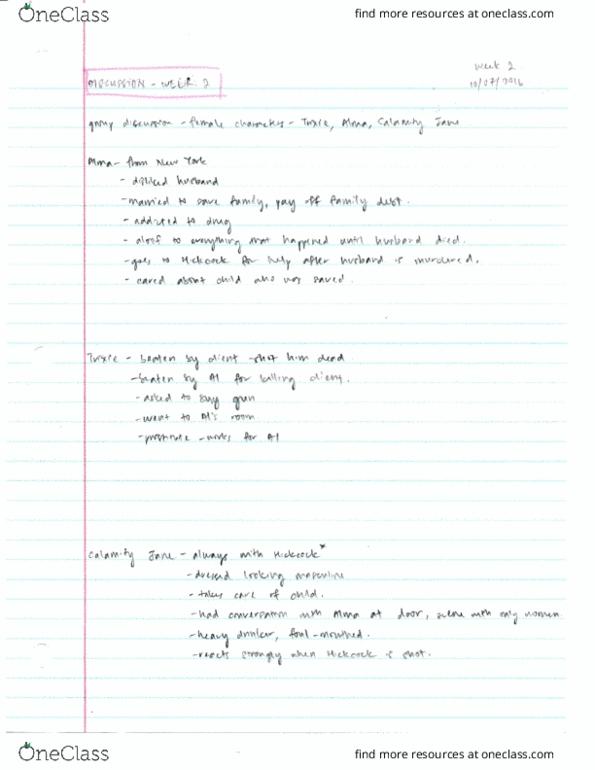 OneClass
find more resources at oneclass.com
week 2
10/07/2016
DISCUSSION - WEEK 2
group discussion - female characters - Trixie, Alma, Calamity Jane
Alma - from New York
- disliked husband
- married to save family, pay off family debt.
- addicted to drug
- aloof to everything that happened until husband died.
- goes to Hickcock for help after husband is murdered.
- cared about child who was saved.
Trixie - beaten by client - shot him dead
- beaten by Al for killing client.
- asked to buy gun
- went to Al's room
- prostitute - works for Al
Calamity Jane - always with Hickcock*
- dressed looking masculine
- takes care of child.
- had conversation with Alma at door, scene with only women
- heavy drinker, foul-mouthed.
- reacts strongly when Hickcock is shot.
OneClass
find more resources at oneclass.com